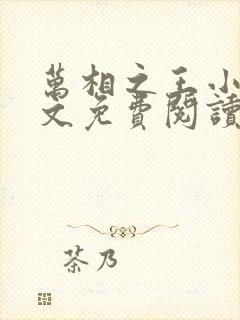 萬相之王小
文免費閱讀
茶乃